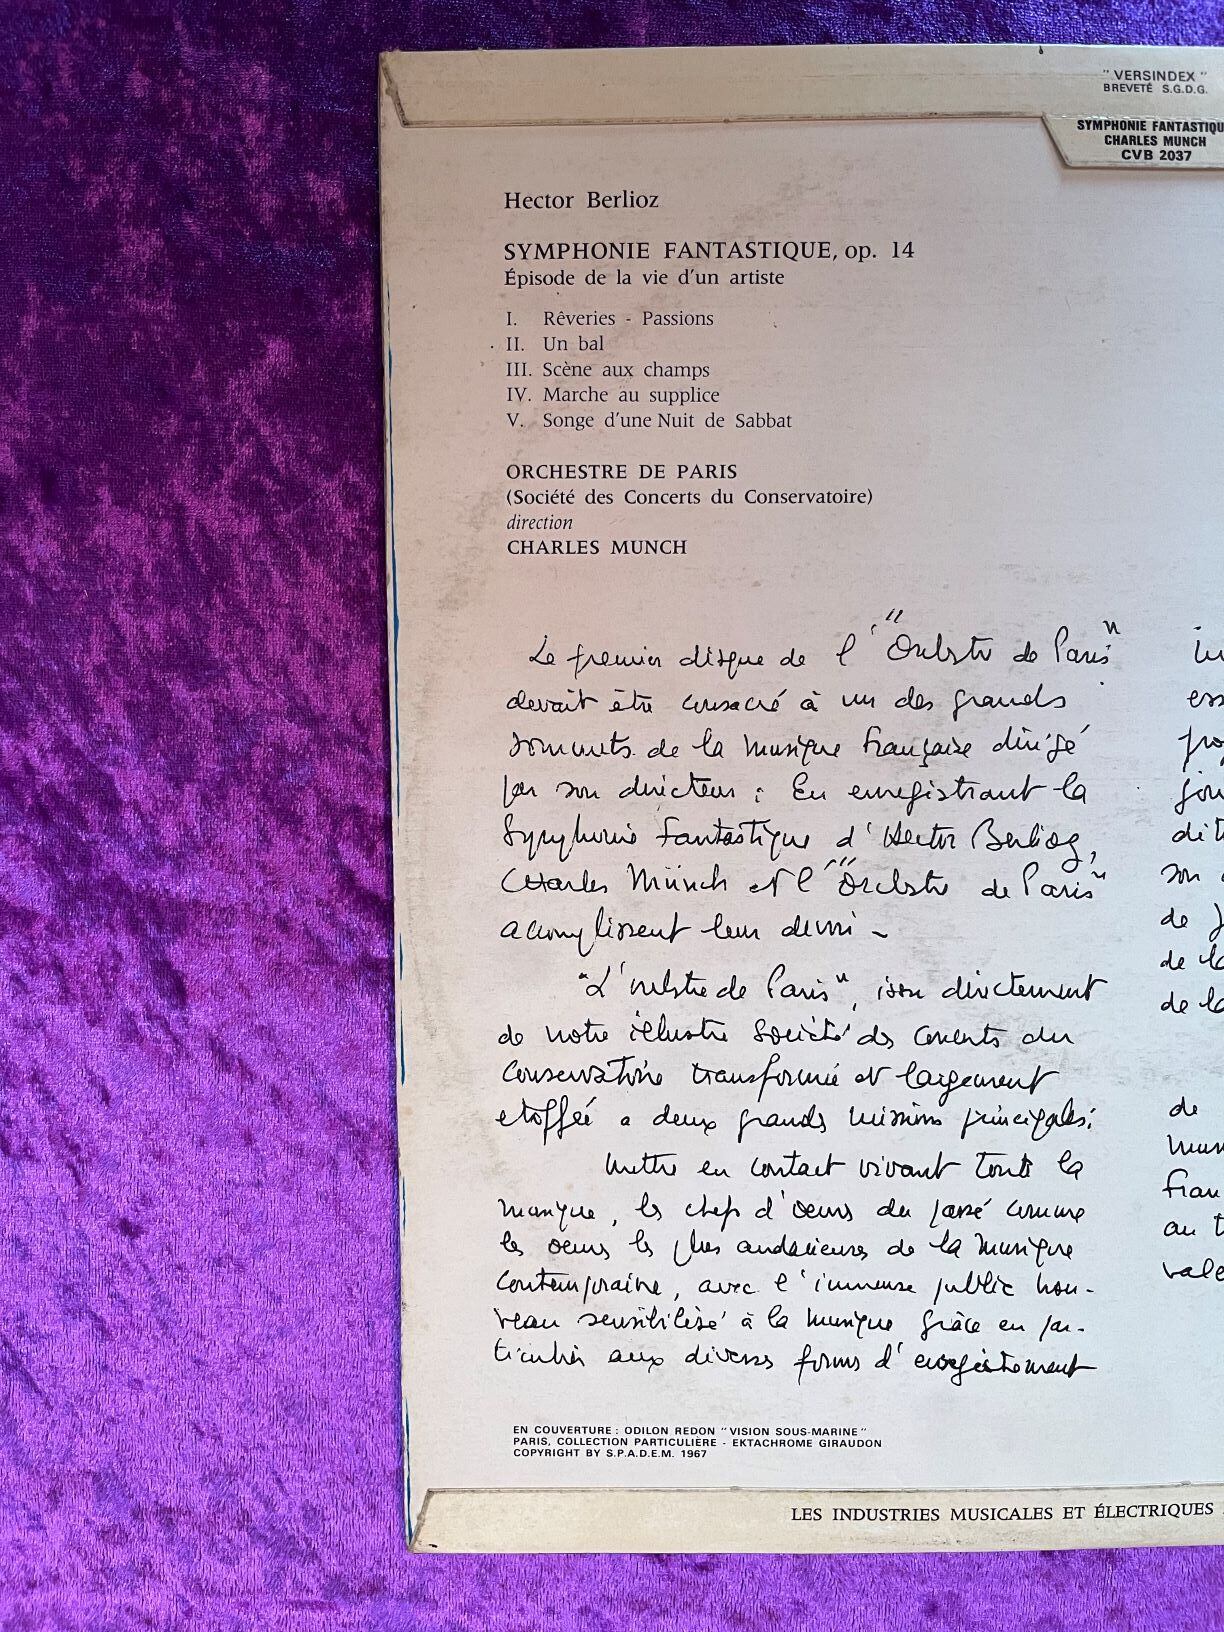 " VERSINDEX "
BREVETÉ S.G.D.G.
SYMPHONIE FANTASTIQU
CHARLES MUNCH
CVB 2037
Hector Berlioz
SYMPHONIE FANTASTIQUE, op. 14
Épisode de la vie d'un artiste
I. Rêveries - Passions
II. Un bal
III. Scène aux champs
IV. Marche au supplice
V. Songe d'une Nuit de Sabbat
ORCHESTRE DE PARIS
(Société des Concerts du Conservatoire)
direction
CHARLES MUNCH
Le premier disque de l'"Orchestre de Paris"
devait être consacré à un des grands
sommets de la musique française dirigé
par son directeur : En enregistrant la
Symphonie Fantastique d'Hector Berlioz,
Charles Münch et l'"Orchestre de Paris"
accomplissent leur devoir -
"L'orchestre de Paris", issu directement
de notre illustre Société des concerts du
Conservatoire transformée et largement
etoffée a deux grands missions principales:
Mettre en contact vivant toute la
musique, les chefs d'oeuvres du passé comme
les oeuvres les plus audacieuses de la musique
Contemporaine, avec l'immense public nou-
veau sensibilisé à la musique grâce en par-
ticulier aux diverses formes d'enregistrement
ess
pro
jou
dit
son
de
de la
de la
de
mus
fran
au t
vale
EN COUVERTURE : ODILON REDON " VISION SOUS-MARINE "
PARIS, COLLECTION PARTICULIÈRE - EKTACHROME GIRAUDON
COPYRIGHT BY S.P.A.D.E.M. 1967
LES INDUSTRIES MUSICALES ET ÉLECTRIQUES